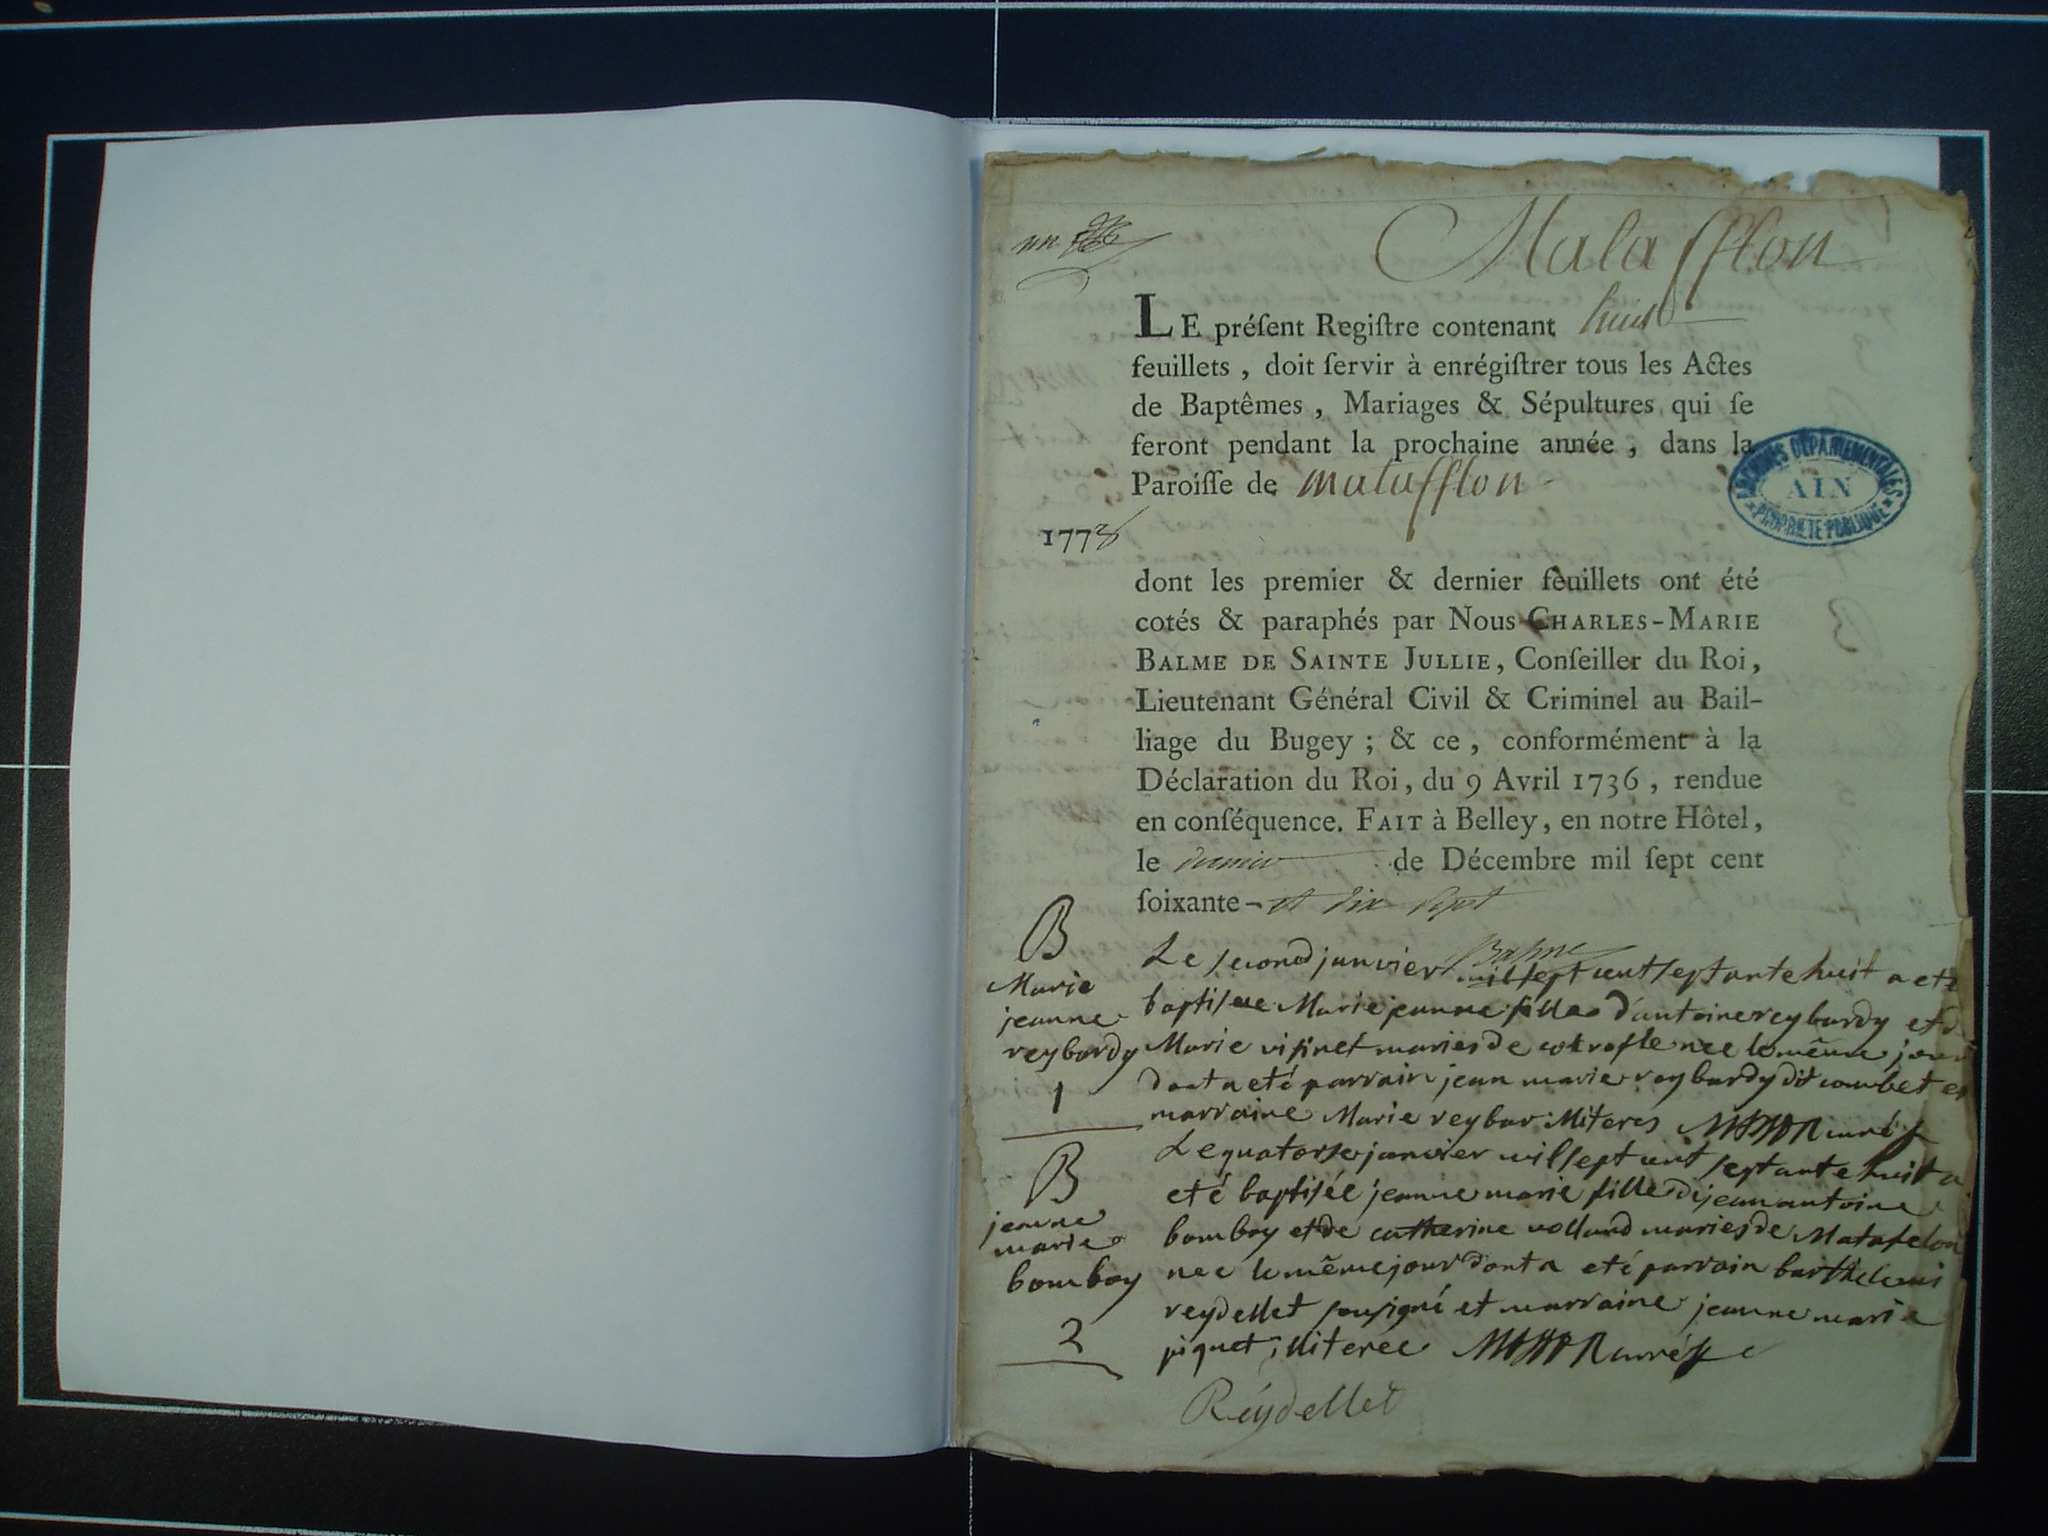 un
Matafflon
LE préſent Regiſtre contenant huit
feuillets, doit ſervir à enrégiſtrer tous les Actes
de Baptêmes, Mariages & Sépultures qui ſe
feront pendant la prochaine année, dans la
Paroiſſe de matafflon
ARCHIVES DÉPARTEMENTALES
AIN
PROPRIÉTÉ PUBLIQUE
1778
dont les premier & dernier feuillets ont été
cotés & paraphés par Nous CHARLES-MARIE
BALME DE SAINTE JULLIE, Conſeiller du Roi,
Lieutenant Général Civil & Criminel au Bail-
liage du Bugey ; & ce, conformément à la
Déclaration du Roi, du 9 Avril 1736, rendue
en conſéquence. FAIT à Belley, en notre Hôtel,
le dernier de Décembre mil ſept cent
ſoixante - et dix sept
Balme
B
Marie
jeanne
reybardy
1
Le second janvier mil sept cent septante huit a eté
baptisee Marie jeanne fille d'antoine reybardy et
Marie visinet maries de nee le même jour
dont a eté parrain jean marie reybardy dit combet et
marraine Marie reybar Miteres curé
B
jeanne
marie
bomboy
2
Le quatorse janvier mil sept cent septante huit a
eté baptisée jeanne marie fille de jean antoine
bomboy et de catherine volland maries de Matafelon
nee le même jour dont a eté parrain barthelemi
reydellet sousigné et marraine jeanne marie
piquet, illiteree curé
Reydellet